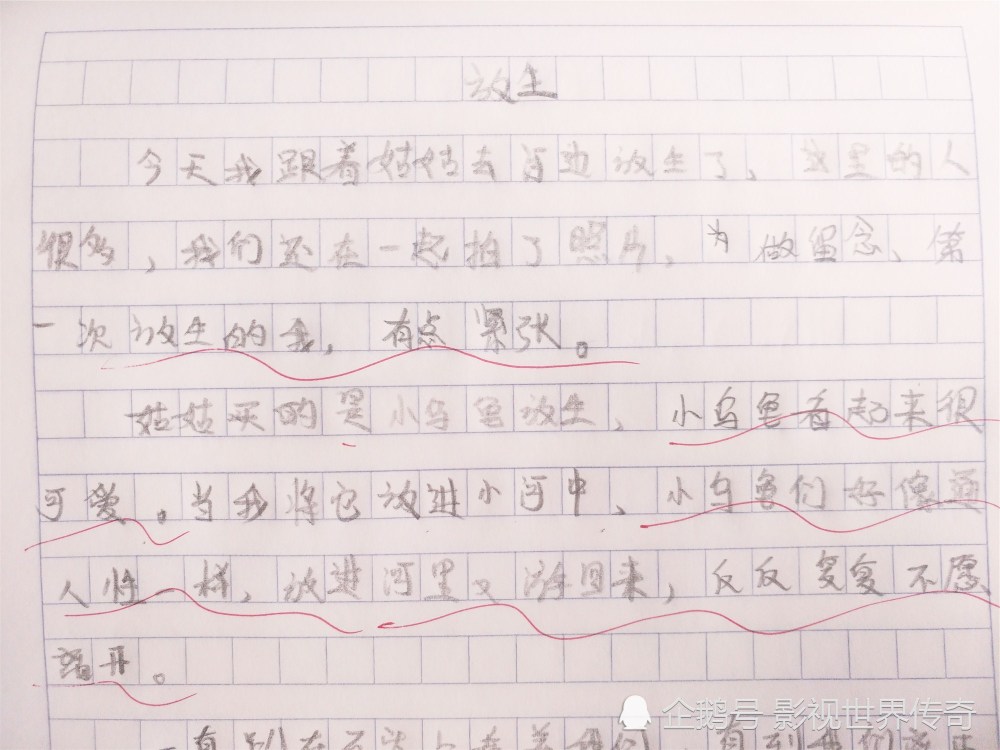 放生
今天我跟着姑姑去河边放生了、这里的人
很多,我们还在一起拍了照片,为做留念、第
一次放生的我,有点紧张。
姑姑买的是小乌龟放生、小乌龟看起来很
可爱。当我将它放进小河中、小乌龟们好像通
人性一样,放进河里又游回来,反反复复不愿
离开。
一直到
企鹅号 影视世界传奇